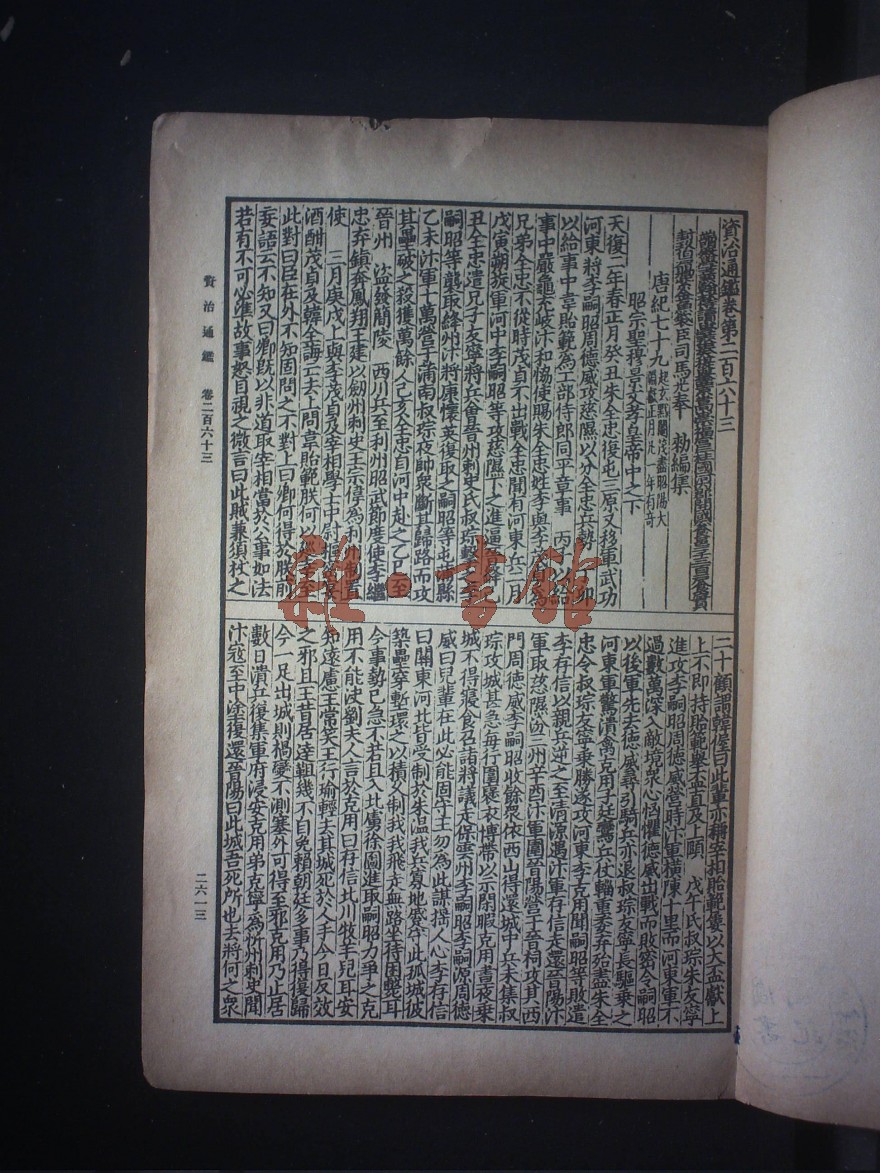 資治通鑑卷第二百六十三
朝散大夫右諫議大夫
敕編集
唐紀七十九
起玄黓閹茂盡昭陽大
淵獻正月凡一年有奇
昭宗聖穆景文孝皇帝中之下
天復二年春正月癸丑朱全忠復屯三原又移軍武功
河東將李嗣昭周德威攻慈隰以分全忠兵勢
以給事中韋貽範為工部侍郎同平章事 丙子以給
事中嚴龜充岐汴和協使賜朱全忠姓李與李
兄弟全忠不從時茂貞不出戰全忠聞有河東兵二月
戊寅朔旋軍河中李嗣昭等攻慈隰下之進逼晉絳己
丑全忠遣兄子友寧將兵會晉州刺史氏叔琮擊之李
嗣昭等襲取絳州汴將康懷英復取之嗣昭等屯蒲縣
乙未汴軍十萬營于蒲南叔琮夜帥衆斷其歸路而攻
其壘破之殺獲萬餘人己亥全忠自河中赴之乙巳至
晉州 盜發簡陵 西川兵至利州昭武節度使李繼
忠弃鎮奔鳳翔王建以劒州刺史王宗偉為利州制置
使 三月庚戌上與李茂貞及宰相學士中尉樞密宴
酒酣茂貞及韓全誨亡去上問韋貽範朕何以巡幸至
此對曰臣在外不知固問之不對上曰卿何得於朕前
妄語云不知又曰卿既以非道取宰相當於公事如法
若有不可必準故事怒目視之微言曰此賊兼須杖之
二十顧謂韓偓曰此輩亦稱宰相貽範屢以大盃獻上
上不即持貽範舉盃直及上頤 戊午氏叔琮朱友寧
進攻李嗣昭周德威營時汴軍橫陳十里而河東軍不
過數萬深入敵境衆心忷懼德威出戰而敗密令嗣昭
以後軍先去德威尋引騎兵亦退叔琮友寧長驅乘之
河東軍驚潰禽克用子廷鸞兵仗輜重委弃殆盡朱全
忠令叔琮友寧乘勝遂攻河東李克用聞嗣昭等敗遣
李存信以親兵逆之至清源遇汴軍存信走還晉陽汴
軍取慈隰汾三州辛酉汴軍圍晉陽營于晉祠攻其西
門周德威李嗣昭收餘衆依西山得還城中兵未集叔
琮攻城甚急每行圍褒衣博帶以示閒暇克用晝夜乘
城不得寢食召諸將議走保雲州李嗣昭李嗣源周德
威曰兒輩在此必能固守王勿為此謀搖人心李存信
曰關東河北皆受制於朱溫我兵寡地蹙守此孤城彼
築壘穿塹環之以積久制我我飛走無路坐待困斃耳
今事勢已急不若且入北虜徐圖進取嗣昭力爭之克
用不能決劉夫人言於克用曰存信北川牧羊兒耳安
知遠慮王常笑王行瑜輕去其城死於人手今日反效
之邪且王昔居達靼幾不自免賴朝廷多事乃得復歸
今一足出城則禍變不測塞外可得至邪克用乃止居
數日潰兵復集軍府浸安克用弟克寧為忻州刺史聞
汴寇至中塗復還晉陽曰此城吾死所也去將何之衆
資治通鑑 卷二百六十三
二六一三
雜·書館